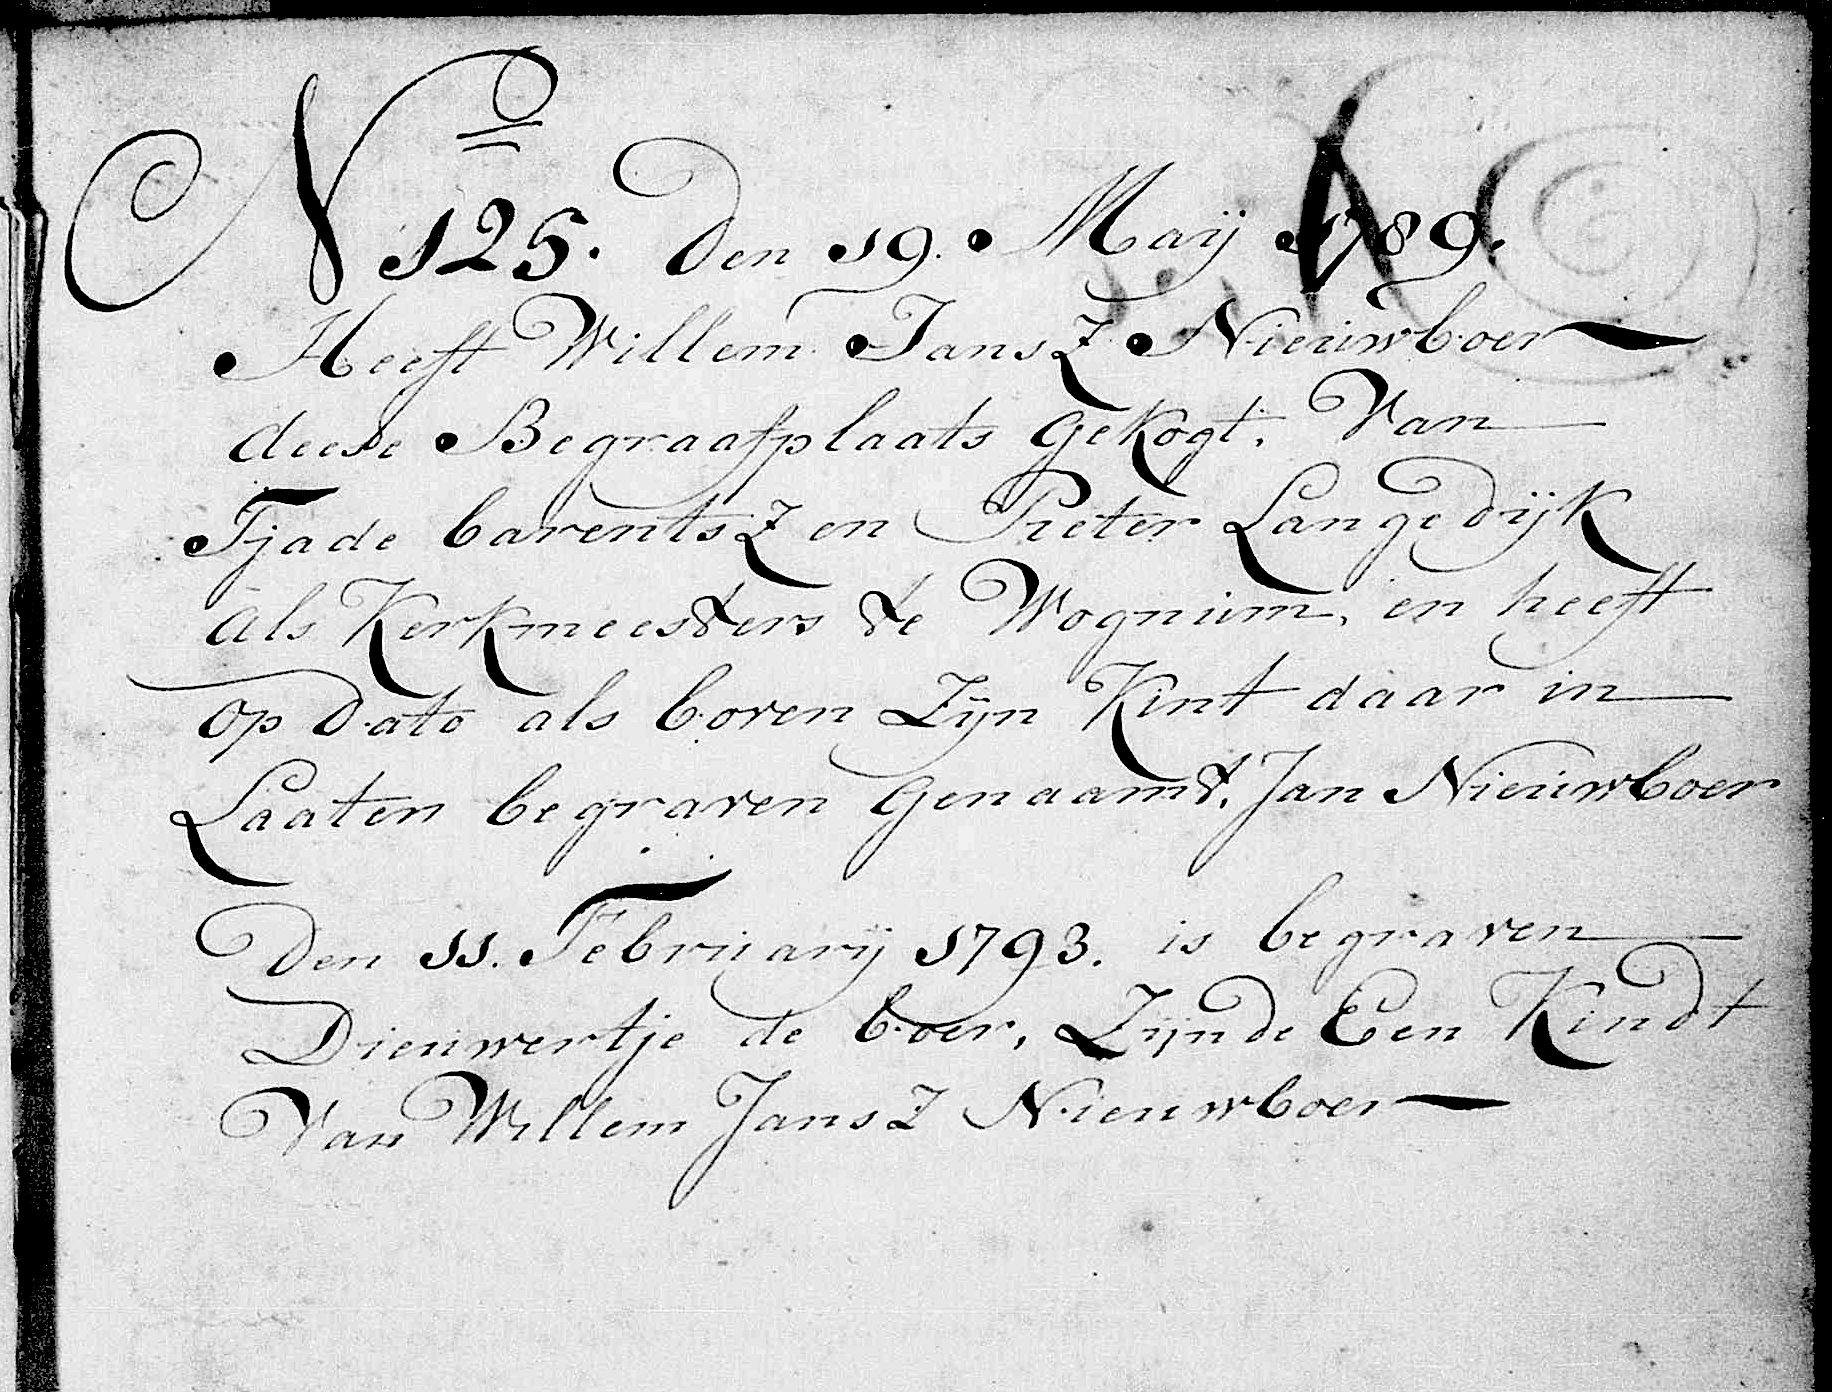 No 125. Den 19. Maij 1789.
Heeft Willem JansZ Nieuwboer
deese Begraafplaats gekogt, Van
Tjade barentsZ en Pieter Langedijk
als Kerkmeesters te Wognum, en heeft
op dato als boven Zijn Kint daar in
Laaten begraven genaamt, Jan Nieuwboer
Den 11. Februarij 1793. is begraven
Dieuwertje de boer, Zijnde Een Kindt
Van Willem JansZ Nieuwboer